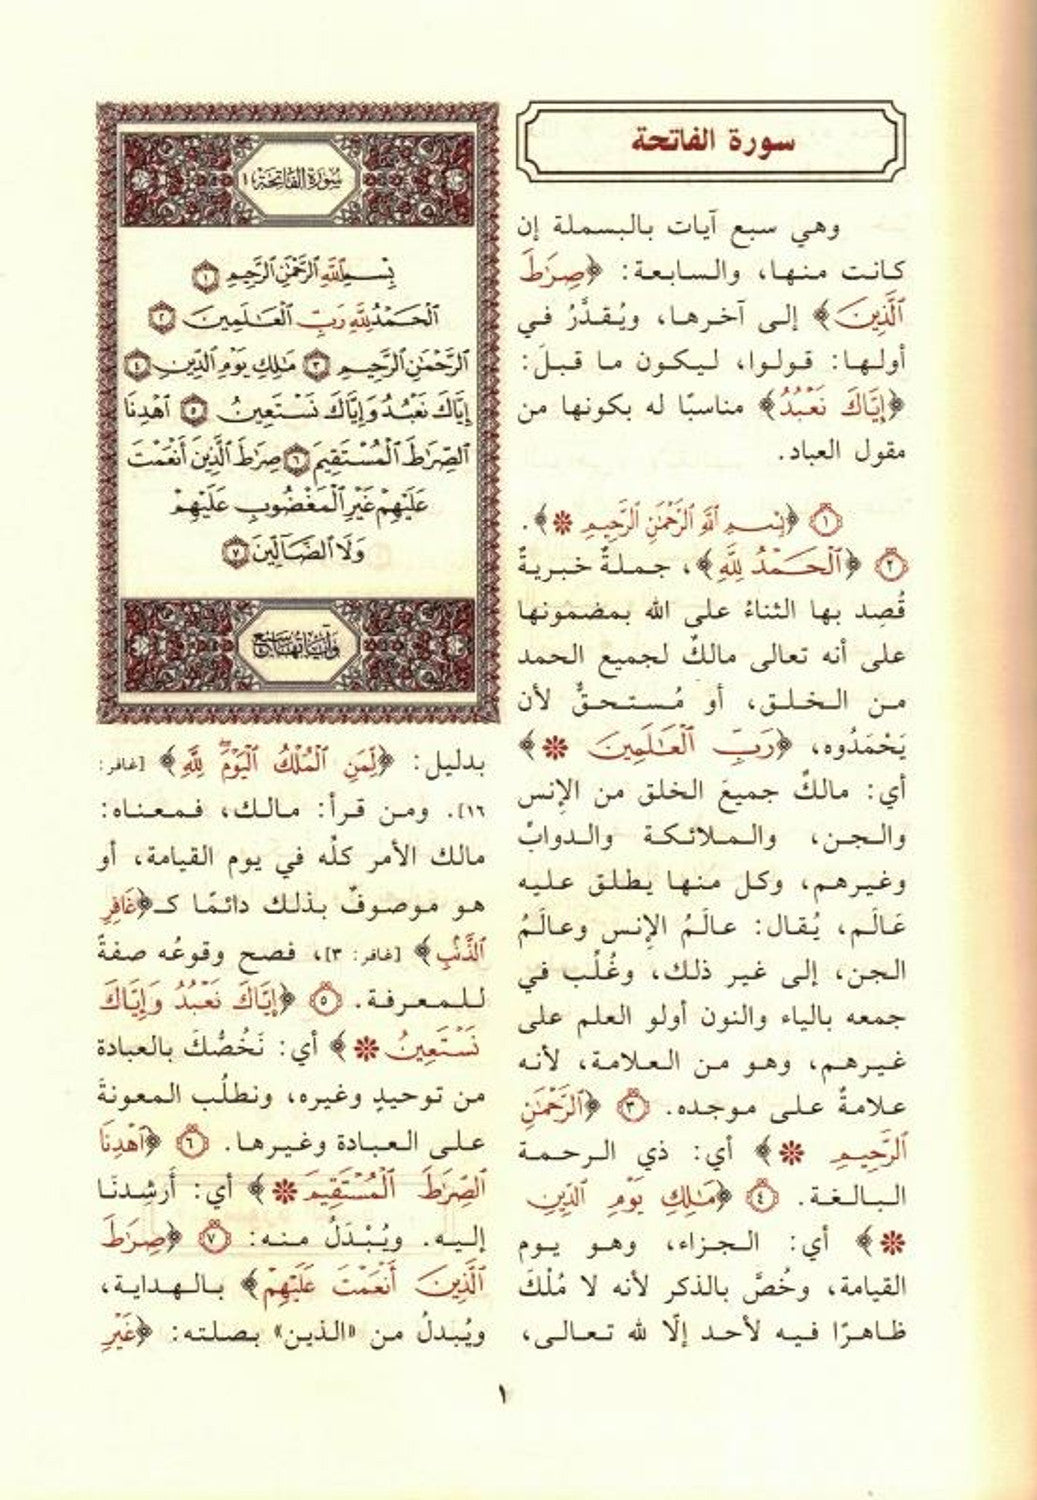 سورة الفاتحة
وهي سبع آيات بالبسملة إن
كانت منها، والسابعة: ﴿صِرَٰطَ
ٱلَّذِينَ﴾ إلى آخرها، ويُقدَّرُ في
أولها: قولوا، ليكون ما قبلَ:
﴿إِيَّاكَ نَعْبُدُ﴾ مناسبًا له بكونها من
مقول العباد.
١ ﴿بِسْمِ ٱللَّهِ ٱلرَّحْمَٰنِ ٱلرَّحِيمِ ❋﴾.
٢ ﴿ٱلْحَمْدُ لِلَّهِ﴾، جملةٌ خبريةٌ
قُصِد بها الثناءُ على الله بمضمونها
على أنه تعالى مالكٌ لجميع الحمد
من الخلق، أو مُستحقٌّ لأن
يَحْمَدُوه، ﴿رَبِّ ٱلْعَٰلَمِينَ ❋﴾
أي: مالكٌ جميعَ الخلق من الإنس
والجن، والملائكة والدوابّ
وغيرهم، وكل منها يطلق عليه
عَالَم، يُقال: عالَمُ الإنس وعالَمُ
الجن، إلى غير ذلك، وغُلِّب في
جمعه بالياء والنون أولو العلم على
غيرهم، وهو من العلامة، لأنه
علامةٌ على موجده. ٣ ﴿ٱلرَّحْمَٰنِ
ٱلرَّحِيمِ ❋﴾ أي: ذي الرحمة
البالغة. ٤ ﴿مَٰلِكِ يَوْمِ ٱلدِّينِ
❋﴾ أي: الجزاء، وهو يوم
القيامة، وخُصَّ بالذكر لأنه لا مُلْكَ
ظاهرًا فيه لأحد إلّا لله تعالى،
سُورَةُ الفَاتِحَةِ ١
بِسْمِ ٱللَّهِ ٱلرَّحْمَٰنِ ٱلرَّحِيمِ ١
ٱلْحَمْدُ لِلَّهِ رَبِّ ٱلْعَٰلَمِينَ ٢
ٱلرَّحْمَٰنِ ٱلرَّحِيمِ ٣ مَٰلِكِ يَوْمِ ٱلدِّينِ ٤
إِيَّاكَ نَعْبُدُ وَإِيَّاكَ نَسْتَعِينُ ٥ ٱهْدِنَا
ٱلصِّرَٰطَ ٱلْمُسْتَقِيمَ ٦ صِرَٰطَ ٱلَّذِينَ أَنْعَمْتَ
عَلَيْهِمْ غَيْرِ ٱلْمَغْضُوبِ عَلَيْهِمْ
وَلَا ٱلضَّآلِّينَ ٧
وَآيَاتُهَا سَبْعٌ
بدليل: ﴿لِّمَنِ ٱلْمُلْكُ ٱلْيَوْمَ ۖ لِلَّهِ﴾ [غافر:
١٦]. ومن قرأ: مالك، فمعناه:
مالك الأمر كلّه في يوم القيامة، أو
هو موصوفٌ بذلك دائمًا كـ﴿غَافِرِ
ٱلذَّنۢبِ﴾ [غافر: ٣]، فصح وقوعُه صفةً
للمعرفة. ٥ ﴿إِيَّاكَ نَعْبُدُ وَإِيَّاكَ
نَسْتَعِينُ ❋﴾ أي: نَخُصُّكَ بالعبادة
من توحيدٍ وغيره، ونطلُب المعونةَ
على العبادة وغيرها. ٦ ﴿ٱهْدِنَا
ٱلصِّرَٰطَ ٱلْمُسْتَقِيمَ ❋﴾ أي: أَرشِدنَا
إليه. ويُبْدَلُ منه: ٧ ﴿صِرَٰطَ
ٱلَّذِينَ أَنْعَمْتَ عَلَيْهِمْ﴾ بالهداية،
ويُبدلُ من «الذين» بصلته: ﴿غَيْرِ
١